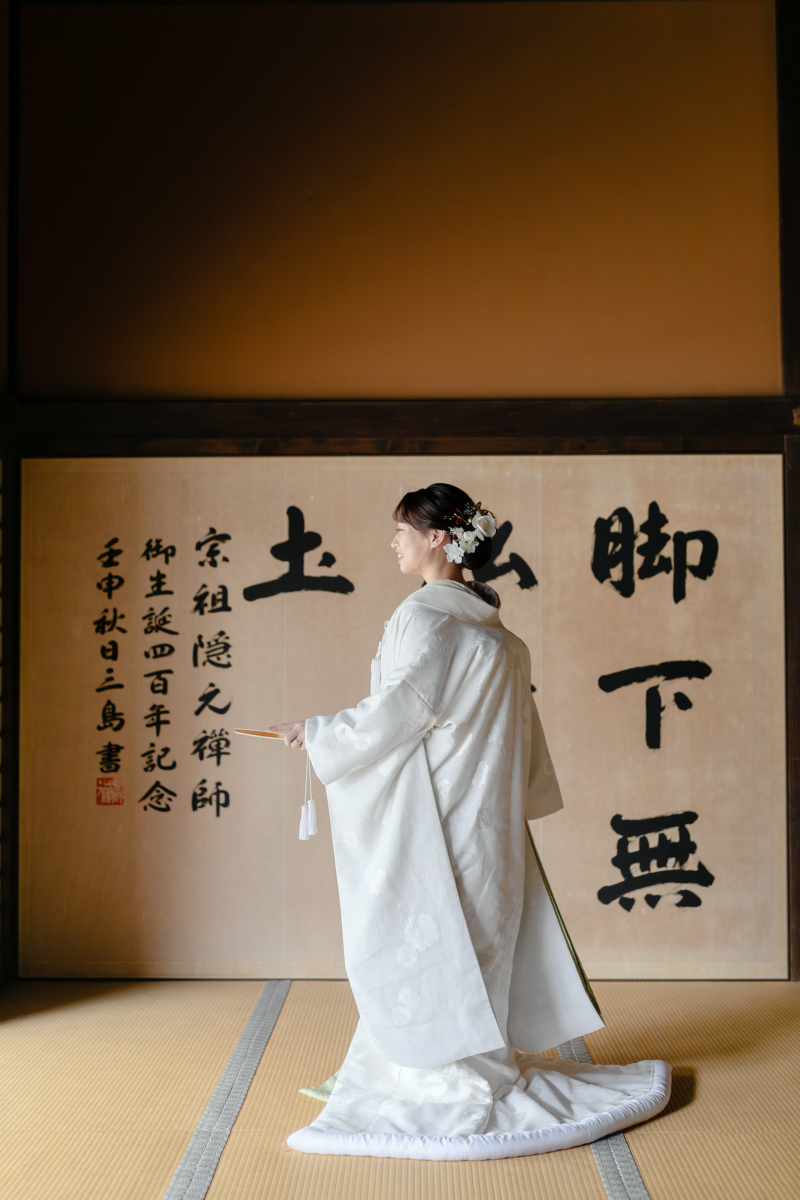 脚下無
土
宗祖隠元禪師
御生誕四百年記念
壬申秋日三島書